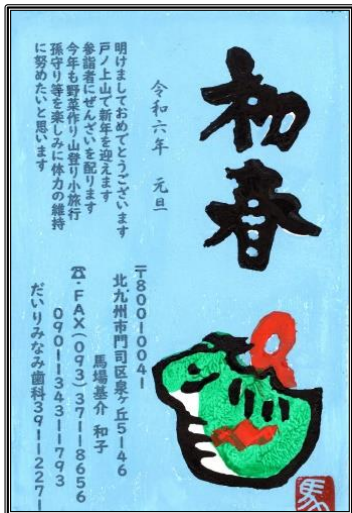 初春
令和六年 元旦
明けましておめでとうございます
戸ノ上山で新年を迎えます
参詣者にぜんざいを配ります
今年も野菜作り山登り小旅行
孫守り等を楽しみに体力の維持
に努めたいと思います
〒800-0041
北九州市門司区泉ヶ丘5-46
馬場基介 和子
☎・FAX(093)371-8656
090-1343-1793
だいりみなみ歯科391-2271
馬